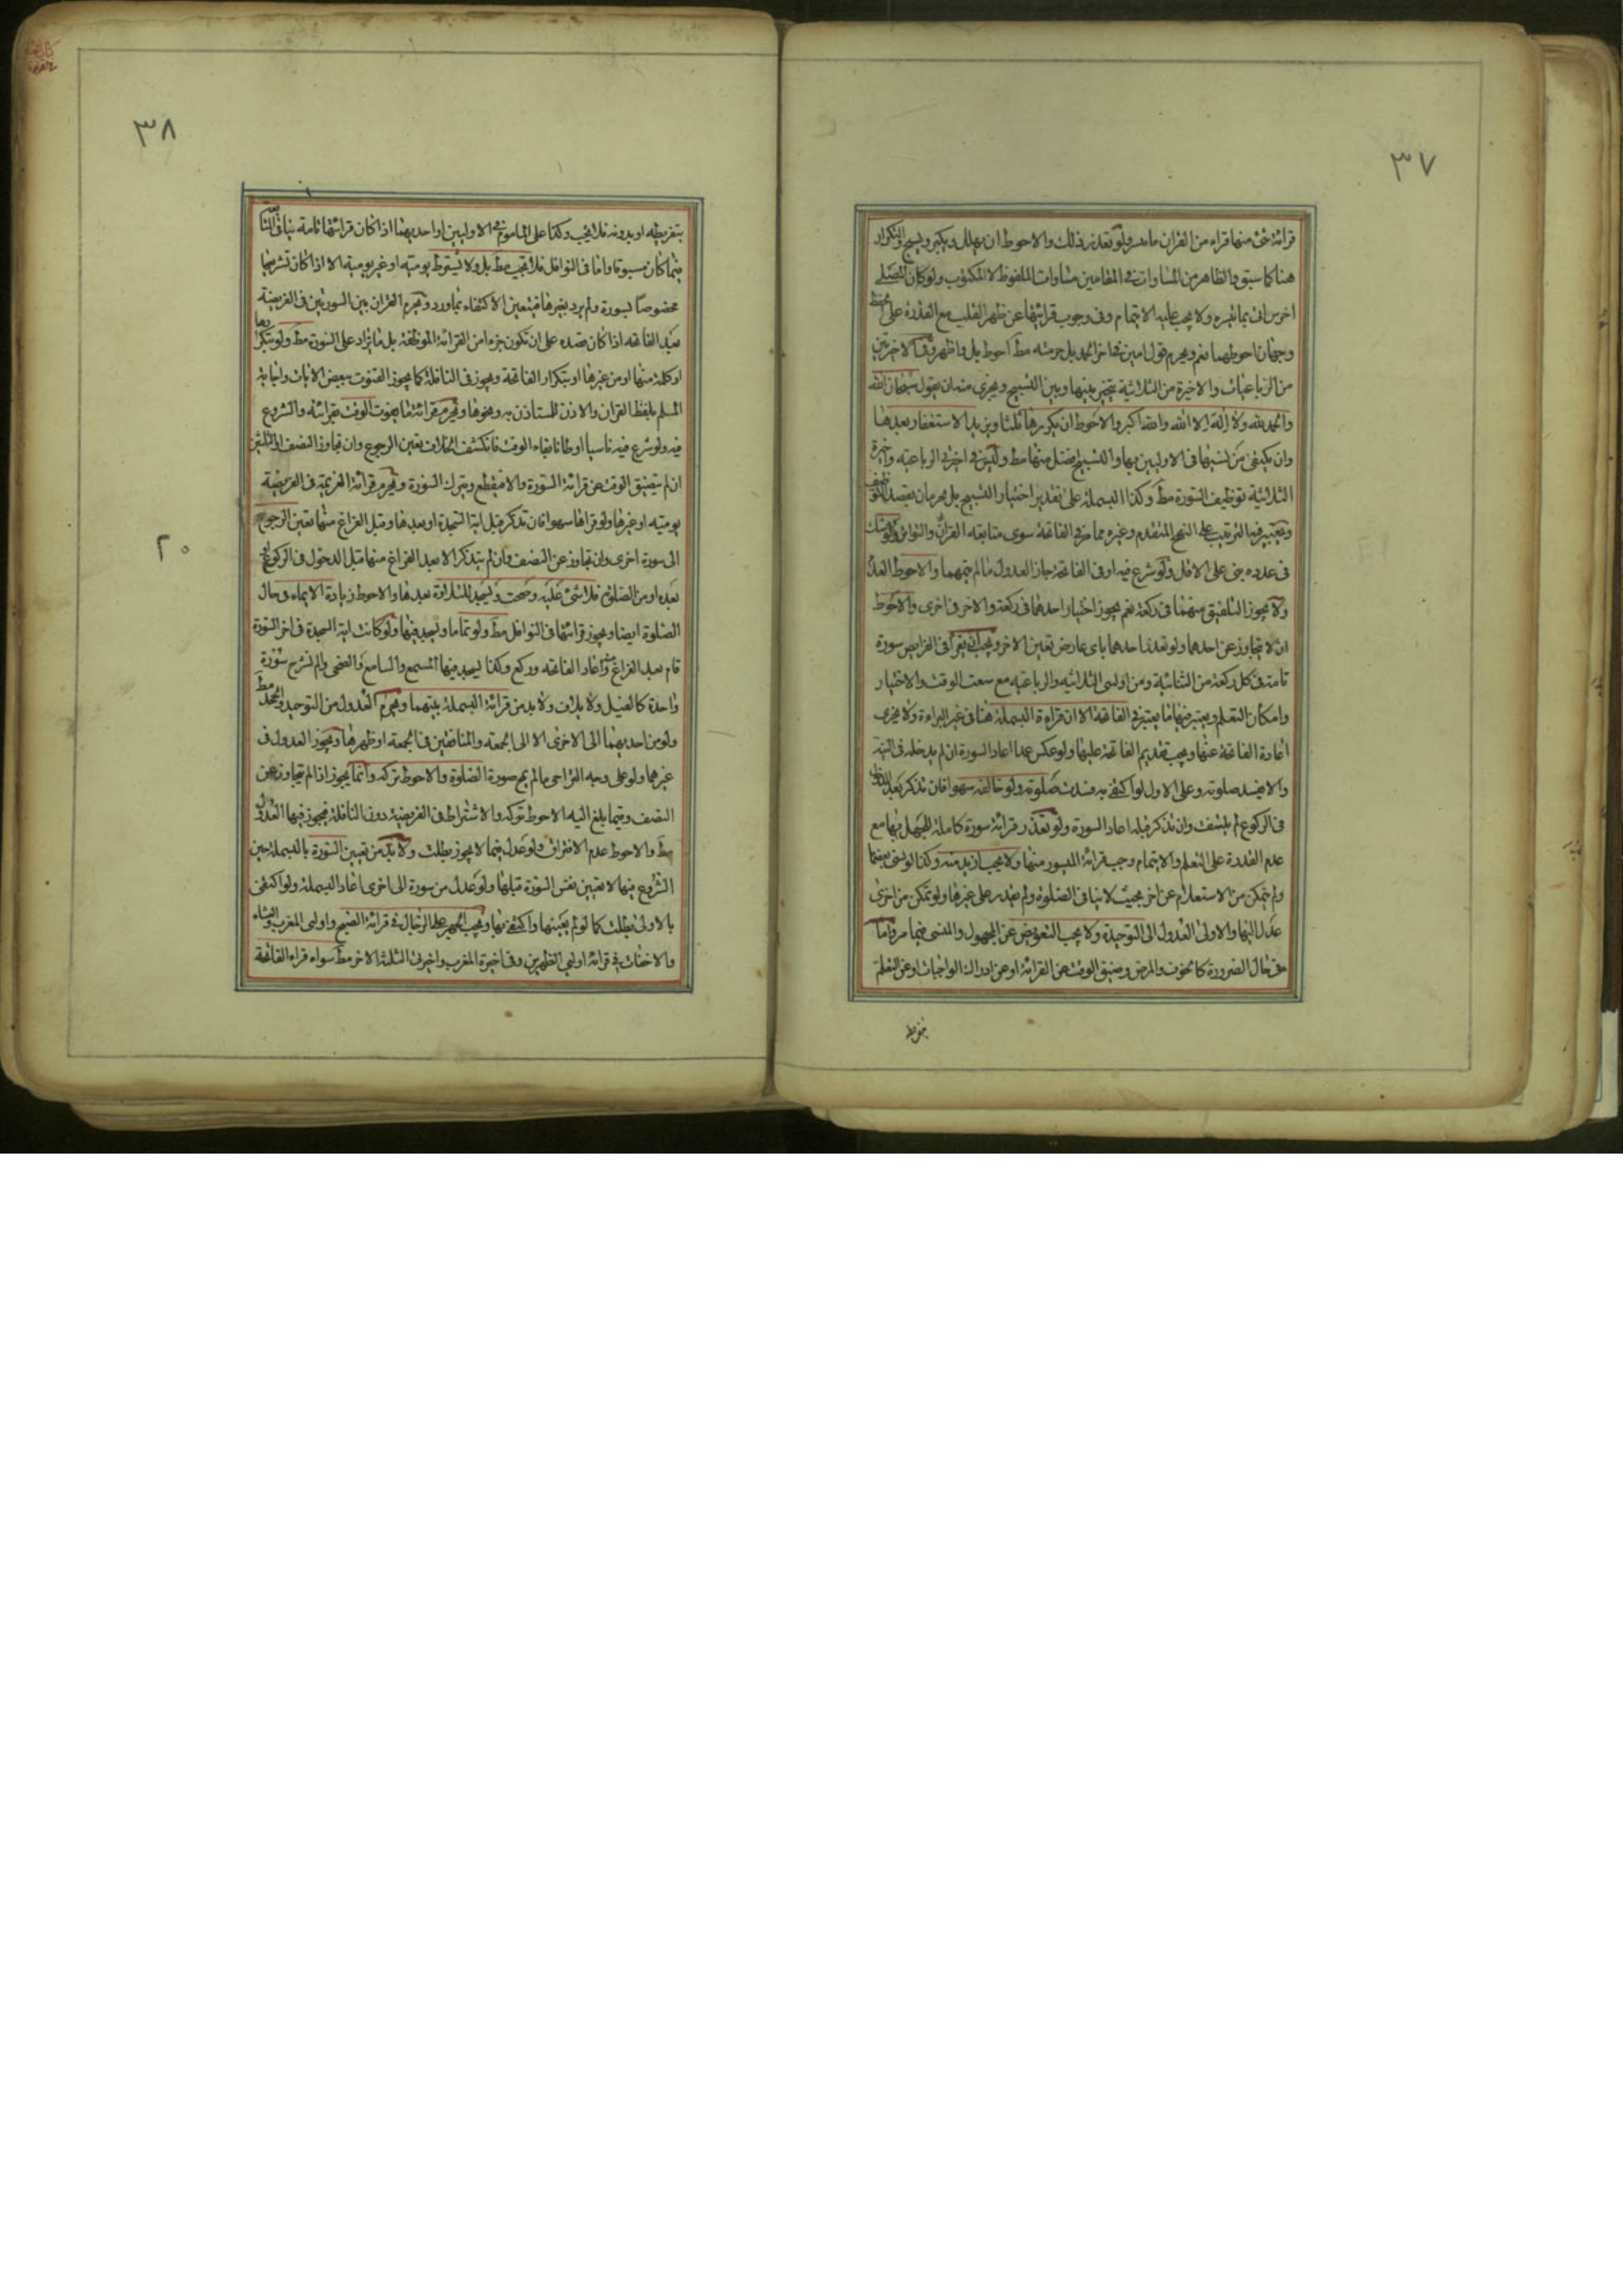 ٣٧
قرائة شئ منها قراء من القران ما تيسر ولو تعذر ذلك والاحوط ان يهلل ويكبر ويسبح والتكرار
هنا كما سبق والظاهر من المساوات في المقامين مساوات الملفوظ لا المكتوب ولو كان المصلى
اخرس اتى بما تيسره ولا يجب عليه الايتمام وفى وجوب قرائتها عن ظهر القلب مع القدرة على الحفظ
وجهان احوطهما نعم ويحرم قول امين فى اخر الحمد بل حرمته مط احوط بل واظهر وفى الاخيرتين
من الرباعيات والاخيرة من الثلاثية يتخير بينها وبين التسبيح ويجزى منه ان يقول سبحان الله
والحمد لله ولا اله الا الله والله اكبر والاحوط ان يكررها ثلثا ويزيد الاستغفار بعدها
وان يكتفى من نسيها فى الاوليين بها والتسبيح افضل منها مط وليس فى اخيرتى الرباعية واخيرة
الثلاثية توظيف السورة مط وكذا البسملة على تقدير اختيار التسبيح بل يحرمان بقصد التوظيف
ويعتبر فيه الترتيب على النهج المتقدم وغيره مما مر فى الفاتحة سوى متابعة القران والتواتر ولو شك
فى عدده بنى على الاقل ولو شرع فيه او فى الفاتحة جاز العدول ما لم يتمهما والاحوط العدم
ولا يجوز التلفيق منهما فى ركعة نعم يجوز اختيار احدهما فى ركعة والاخر فى اخرى والاحوط
ان لا يتجاوز عن احدهما ولو تعذر احدهما باى عارض تعين الاخر ويجب ان يقرا فى الفرايض سورة
تامة فى كل ركعة من الثنائية ومن اوليى الثلاثية والرباعية مع سعت الوقت والاختيار
وامكان التعلم ويعتبر فيها ما يعتبر فى الفاتحة الا ان قراءة البسملة هنا فى غير البراءة ولا يجزى
اعادة الفاتحة عنها ويجب تقديم الفاتحة عليها ولو عكس عمدا اعاد السورة ان لم يدخله فى النية
والا فيسد صلوته وعلى الاول لو اكتفى به فسدت صلوته ولو خالفه سهوا فان تذكر بعد الدخول
فى الركوع لم يلتفت وان تذكر قبله اعاد السورة ولو تعذر قرائة سورة كاملة للجهل بها مع
عدم القدرة على التعلم والايتمام وجب قرائة الميسور منها ولا يجب ازيد منه وكذا لو نسى بعضها
ولم يتمكن من الاستعلام عن اخر بحيث لا ينافى الصلوة ولم يقدر على غيرها ولو تمكن من اخرى
عدل اليها والاولى العدول الى التوحيد ولا يجب التعويض عن المجهول والمنسى فيما مر واما
فى حال الضرورة كالخوف والمرض وضيق الوقت عن القرائة او عن ادراك الواجبات او عن التعلم
٣٨
بتفريطه او بدونه فلا يجب وكذا على الماموم فى الاوليين او احديهما اذا كان قرائتها تامة ينافى المتابعة
فيما كان مسبوقا واما فى النوافل فلا تجب مط بل ولا ليسقط يومية او غير يومية الا اذا كان تشريعها
مخصوصا بسورة ولم يرد بغيرها فيتعين الاكتفاء بما ورد ويحرم القران بين السورتين فى الفريضة
بعد الفاتحة اذا كان قصده على ان تكون جزءا من القرائة الموظفة بل ما يزاد على السورة مط ولو بتكرارها
او كلمة منها او من غيرها او بتكرار الفاتحة ويجوز فى النافلة كما يجوز القنوت ببعض الايات واتيانه
المسلم بلفظ القران والاذن للمستاذن به ونحوها ويحرم قرائة ما يفوت الوقت بقرائته والشروع
فيه ولو شرع فيه ناسيا او ظانا بقاء الوقت فانكشف الخلاف تعين الرجوع وان تجاوز النصف او الثلثين
ان لم يتضيق الوقت عن قرائة السورة والا فيقطع ويترك السورة ويحرم قرائة العزيمة فى الفريضة
يومية او غيرها ولو قراها سهوا فان تذكر قبل اية السجدة او بعدها وقبل الفراغ منها تعين الرجوع
الى سورة اخرى وان تجاوز عن النصف وان لم يتذكر الا بعد الفراغ منها قبل الدخول فى الركوع او
بعده او من الصلوة فلا شئ عليه وصحت ويسجد للتلاوة بعدها والاحوط زيادة الايماء فى حال
الصلوة ايضا ويجوز قرائتها فى النوافل مط ولو تماما ويسجد فيها ولو كانت اية السجدة فى اخر السورة
قام بعد الفراغ منها واعاد الفاتحة وركع وكذا يسجد فيها المسمع والسامع والضحى والم نشرح سورة
واحدة كالفيل ولايلاف ولا بد من قرائة البسملة بينهما ويحرم العدول من التوحيد والجحد مط
ولو من احديهما الى الاخرى الا الى الجمعة والمنافقين فى الجمعة او ظهرها ويجوز العدول فى
غيرهما ولو على وجه التراخى ما لم يمح صورة الصلوة والاحوط تركه وانما يجوز اذا لم يتجاوز عن
النصف وفيما بلغ اليه الاحوط تركه والاشتراط فى الفريضة دون النافلة فيجوز فيها العدول
مط والاحوط عدم الافتراق ولو عدل فيما لا يجوز بطلت ولا بد من تعيين السورة بالبسملة حين
الشروع فيها لا تعيين نفس السورة قبلها ولو عدل من سورة الى اخرى اعاد البسملة ولو اكتفى
بالاولى بطلت كما لو لم يعينها واكتفى بها ويجب الجهر على الرجال فى قرائة الصبح واوليى المغرب والعشاء
والاخفات فى قرائة اوليى الظهرين وفى اخيرة المغرب واخيرتى الثلثة الاخر مط سواء قراء الفاتحة
٢٠